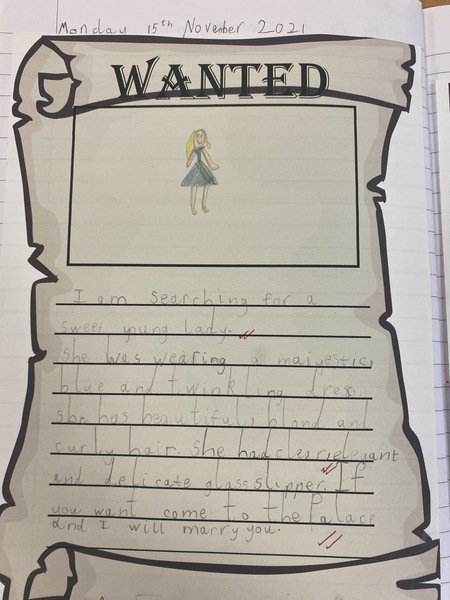 Monday 15th November 2021
WANTED
I am searching for a
sweet young lady.
She was wearing a maijestic,
blue and twinkling dress.
she has beautiful, blond and
curly hair. She had clear, elegant
and delicate glass slipper. If
you want come to the Palace
and I will marry you.